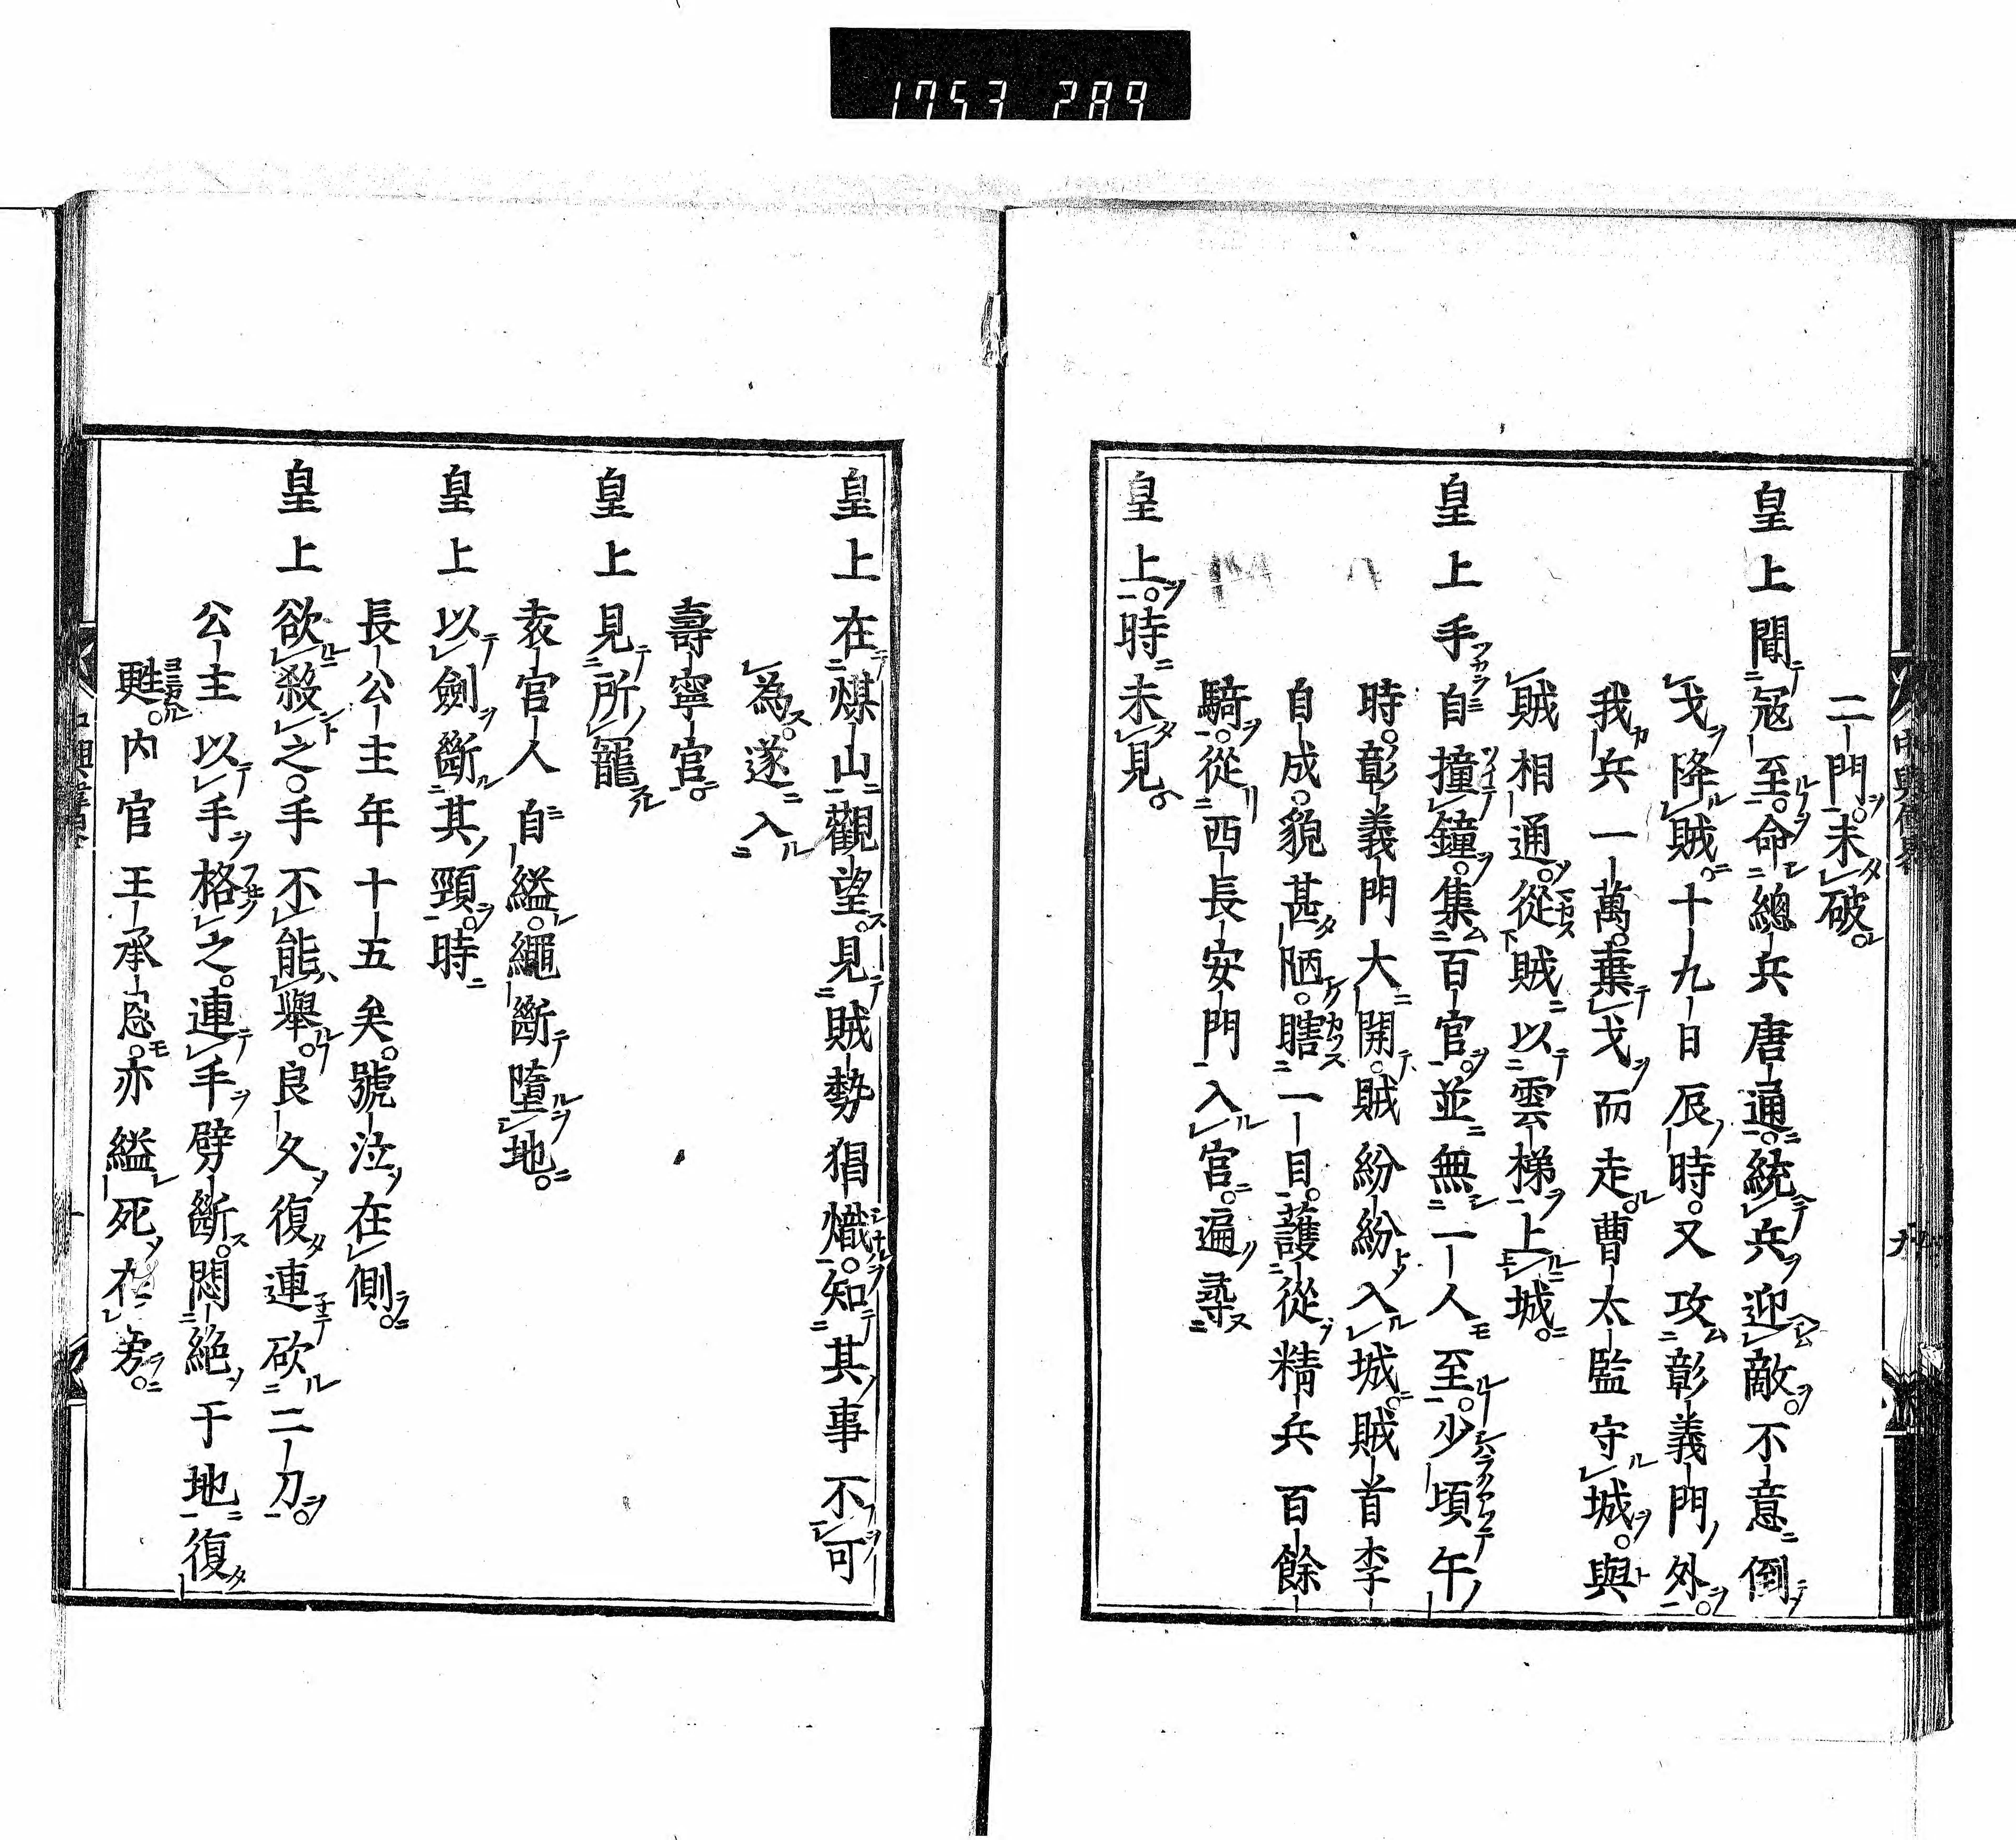 1753 289
二門未破
皇上聞寇至命總兵唐通統兵迎敵不意倒
戈降賊十九日辰時又攻彰義門外
我兵一萬棄戈而走曹太監守城與
賊相通從賊以雲梯上城
皇上手自撞鐘集百官並無一人至少頃午
時彰義門大開賊紛紛入城賊首李
自成貌甚陋瞎一目護從精兵百餘
騎從西長安門入官遍尋
皇上時未見
皇上在煤山觀望見賊勢猖熾知其事不可
為遂入
壽寧官
皇上見所寵
袁官人自縊繩斷墮地
皇上以劍斷其頸時
長公主年十五矣號泣在側
皇上欲殺之手不能舉良久復連砍二刀
公主以手格之連手劈斷悶絕于地復
甦內官王承恩亦縊死在旁